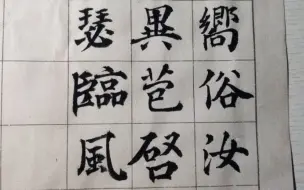 嚮俗汝
異苞啓
瑟臨風